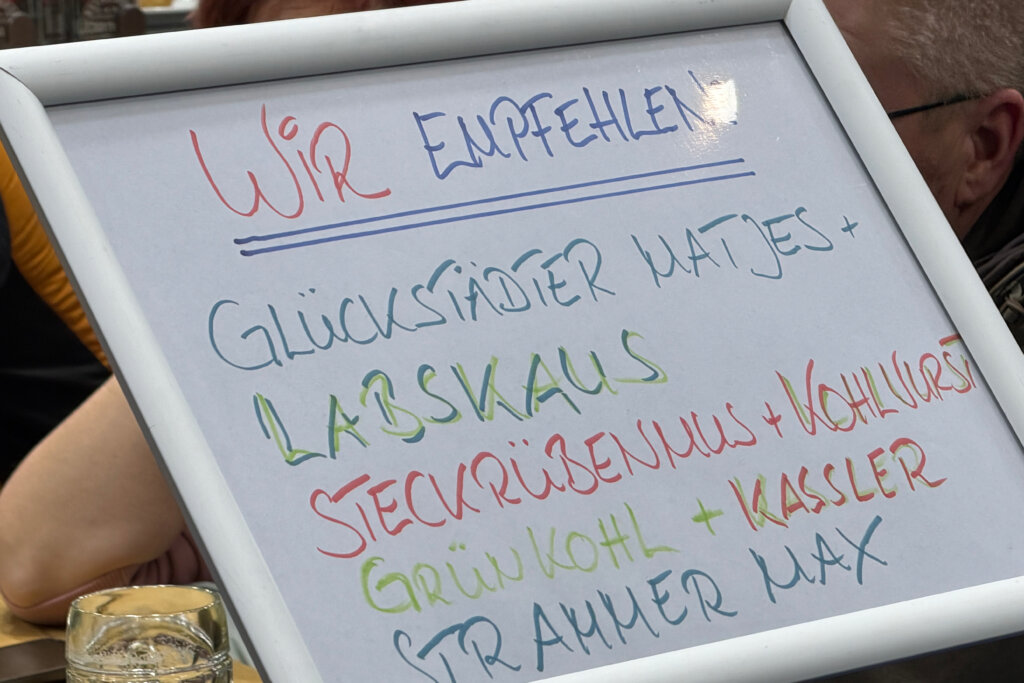 WIR EMPFEHLEN:
GLÜCKSTÄDTER MATJES +
LABSKAUS
STECKRÜBENMUS + KOHLWURST
GRÜNKOHL + KASSLER
STRAMMER MAX